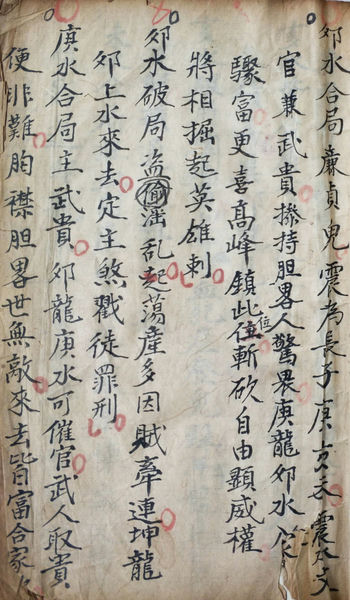 卯水合局廉貞鬼震為長子庚亥未震水交
官兼武貴摻持胆畧人驚畏庚龍卯水
驟富更喜高峰鎮此位斬砍自由顯威權
將相掘起英雄刺
卯水破局盜偷淫乱起蕩產多因賊牽連坤龍
卯上水來去定主煞戳徒罪刑
庚水合局主武貴卯龍庚水可催官武人取貴
便非難胸襟胆畧世無敵來去皆富合家